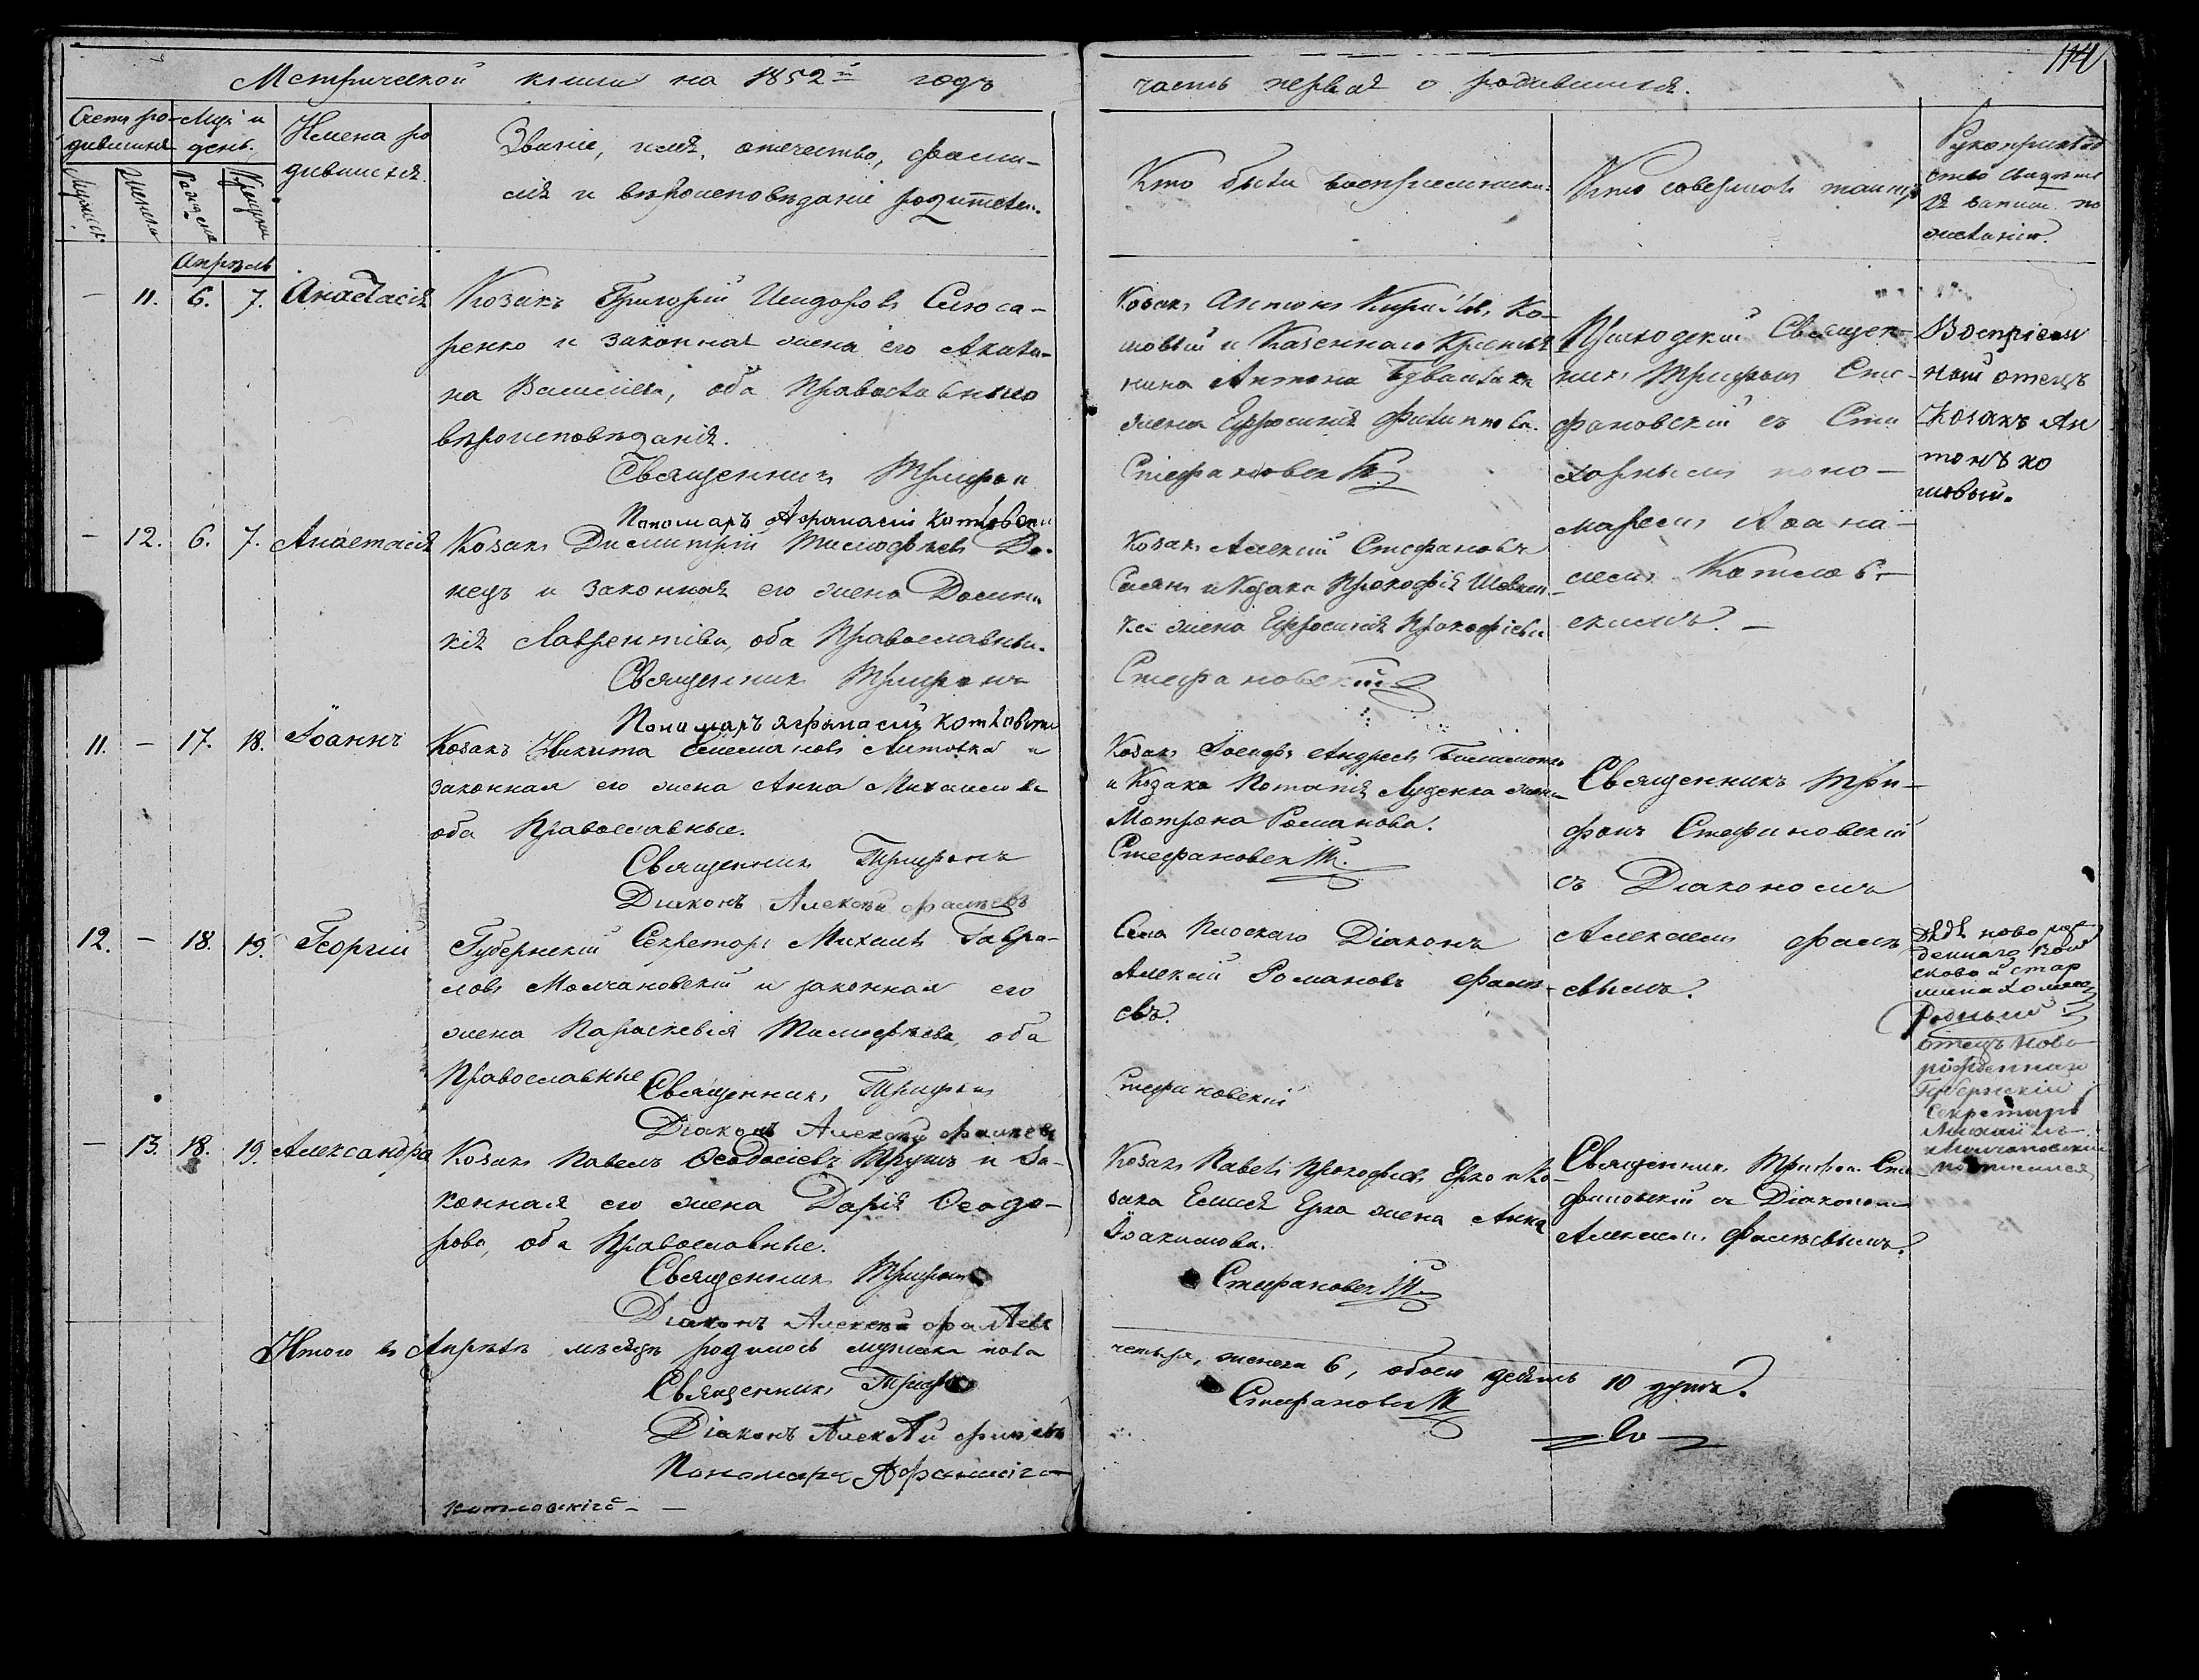 114
Метрической книги на 1852й годъ
часть первая о родившихся.
Счетъ ро-
дившихся
Мужеска
Женска
Мцъ и
день.
Рожденія
Крещенія
Имена ро
дившихся.
Званіе, имя, отечество, фами-
лія и вѣроисповѣданіе родителей.
Кто были воспріемники.
Кто совершалъ таинство
Рукоприклад
ство свидѣте
лей записи по
желанію.
Апрѣль
— 11. 6. 7. Анастасія
Козакъ Григорій Исидоровъ Слюса-
ренко и законная жена его Акили-
на Васильева, оба Православнаго
вѣроисповѣданія.
Священникъ Трифон
Пономаръ Афанасій Котловскій
Козакъ Антонъ Кириловъ Ко-
шовый и Казеннаго Крестья
нина Антона
жена Ефросинія Филиппова.
Стефановскій
Приходскій Священ-
никъ Трифонъ Сте-
фановскій съ
понo-
маремъ Афана-
сіемъ Котлов-
скимъ. —
Воспріем
ный отецъ
Козакъ Ан
тонъ Ко
шовый.
— 12. 6. 7. Анастасія
Козакъ Димитрій Тимофѣевъ До-
нецъ и законная его жена Домни
кія Лаврентіева, оба Православные.
Священникъ Трифонъ
Пономаръ Афанасій Котловскій
Козакъ Алексій Стефановъ
и Козака Прокофія Шевчен
ка жена Ефросинія Прокофіева
Стефановскій
11. — 17. 18. Іоаннъ
Козакъ Никита Литовка и
законная его жена Анна Михайлова
оба Православные.
Священникъ Трифонъ
Діаконъ Алексѣй Фалѣевъ
Козакъ Іосифъ Андреевъ
и Козака Потапія Луценка жена
Матрона Романова.
Стефановскій
Священникъ Три-
фонъ Стефановскій
съ Діакономъ
Алексіемъ Фалѣ-
евымъ.
12. — 18. 19. Георгій
Губернскій Секретарь Михаилъ Гаври-
ловъ Молчановскій и законная его
жена Параскевія Тимофѣева, оба
Православные
Священникъ Трифонъ
Діаконъ Алексѣй Фалѣевъ
Села Плоскаго Діаконъ
Алексій Романовъ Фалѣ-
евъ.
Стефановскій
Дядя новорож
деннаго
Родный
отецъ ново
рожденнаго
Губернскій
Секретарь
Михаилъ
Молчановскій
подписался
— 13. 18. 19. Александра
Козакъ Павелъ Ѳеодосіевъ и за-
конная его жена Дарія Ѳеодо-
рова, оба Православные.
Священникъ Трифонъ
Діаконъ Алексѣй Фалѣевъ
Козакъ Павелъ Прокофіевъ Ерко и Ко-
зака Елисея Ерка жена Анна
Іоакимова.
Стефановскій
Священникъ Трифонъ Сте-
фановскій съ Діакономъ
Алексіемъ Фалѣевымъ.
Итого въ Апрѣлѣ мѣсяцѣ родилось мужеска пола
четыре, женска 6, обоего десять 10 душъ.
Священникъ Трифонъ
Стефановскій
Діаконъ Алексѣй Фалѣевъ
Пономаръ Афанасій
Котловскій —